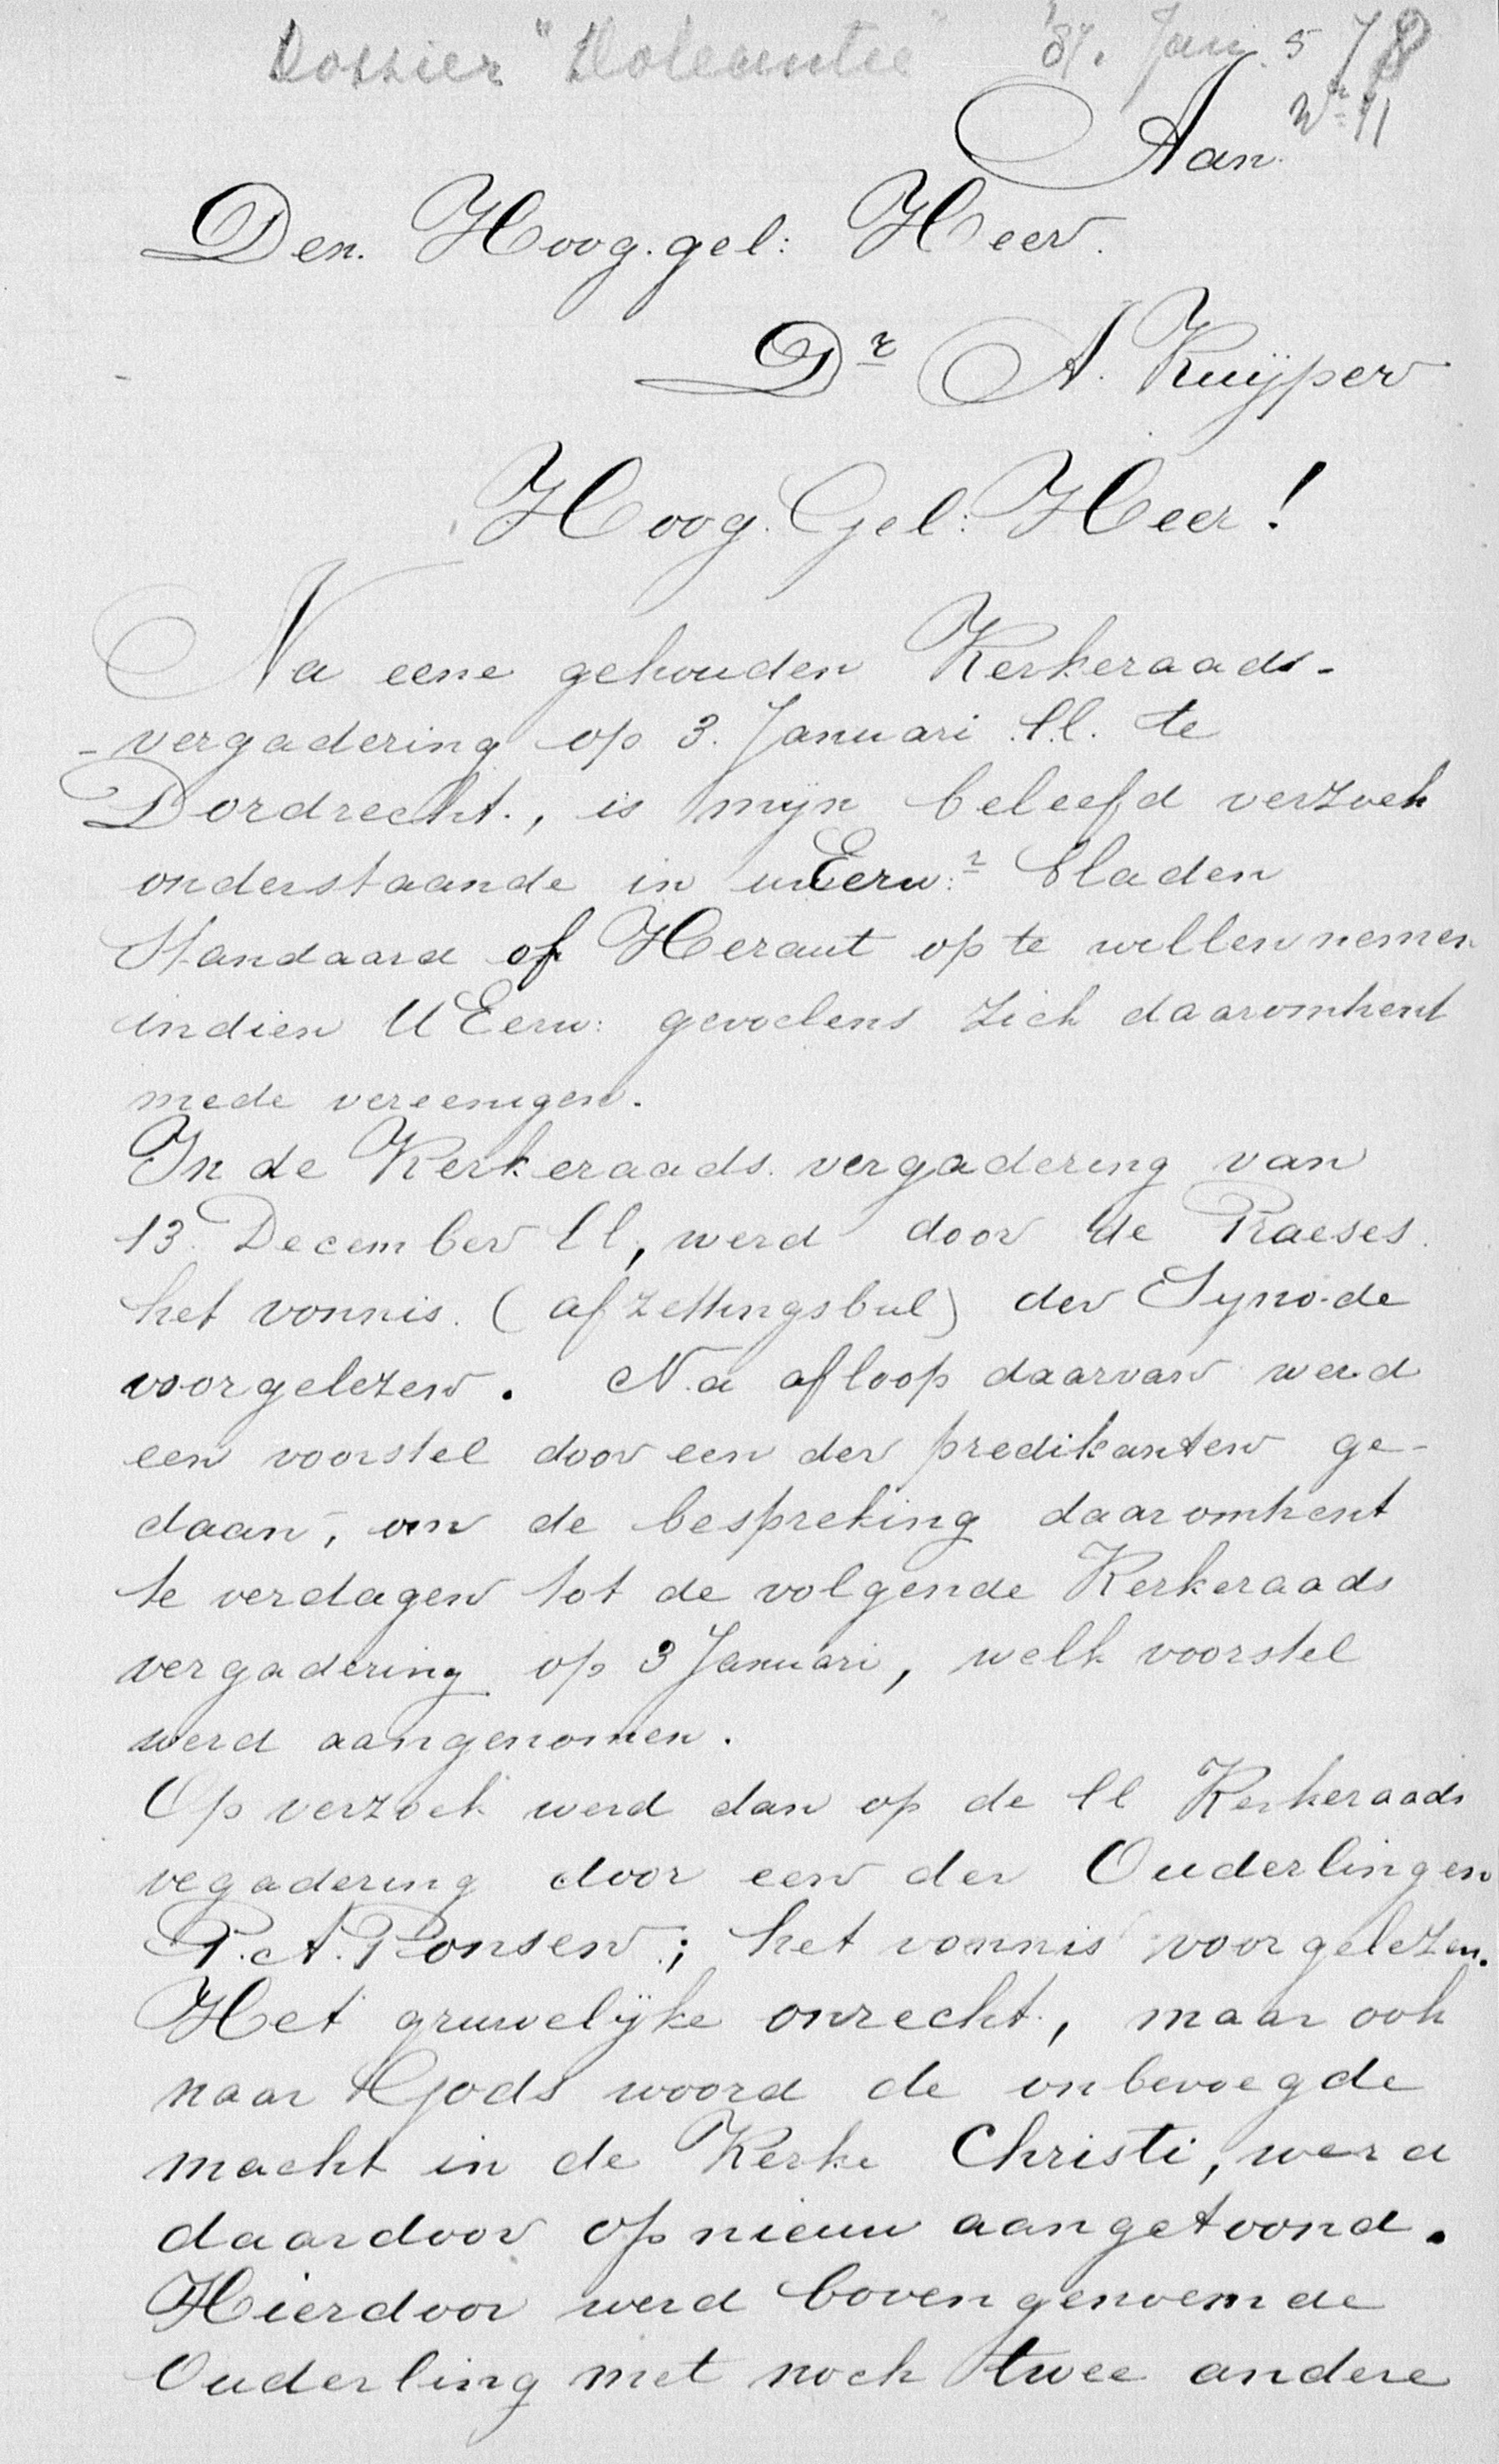 Dossier "Doleantie" '87. Jan. 5 78
Nr 11
Aan.
Den. Hoog. gel: Heer.
Dr A. Kuÿper
Hoog. Gel: Heer!
Na eene gehouden Kerkeraads-
-vergadering op 3. Januari l.l. te
Dordrecht., is mijn beleefd verzoek
onderstaande in uEerw:r bladen
Standaard of Heraut op te willen nemen
indien UEerw: gevoelens zich daaromtrent
mede vereenigen.
In de Kerkeraads. vergadering van
13. December ll, werd door de Praeses.
het vonnis. (afzettingsbul) der Synode
voorgelezen. Na afloop daarvan werd
een voorstel door een der predikanten ge-
daan, om de bespreking daaromtrent
te verdagen tot de volgende Kerkeraads
vergadering op 3 Januari, welk voorstel
werd aangenomen.
Op verzoek werd dan op de ll Kerkeraads
vegadering door een der Ouderlingen
P. A. Ponsen; het vonnis voorgelezen.
Het gruwelÿke onrecht., maar ook
naar Gods woord de onbevoegde
macht in de Kerke Christi, werd
daardoor op nieuw aangetoond.
Hierdoor werd bovengenoemde
Ouderling met noch twee andere